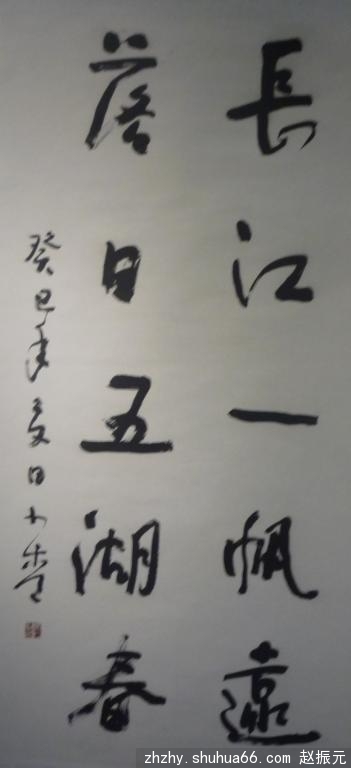 長江一帆遠
落日五湖春
癸巳年夏日
zhzhy.shuhua66.com 赵振元